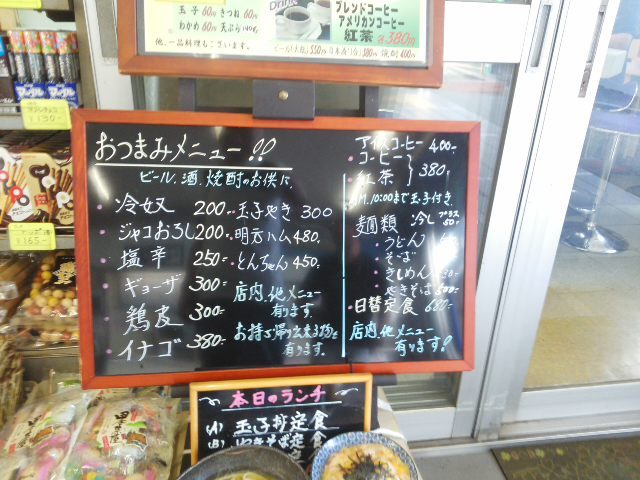 玉子60円 きつね60円
わかめ60円 天ぷら
他、一品料理もございます。
Drink
ブレンドコーヒー
アメリカンコーヒー
紅茶 各380円
¥130
¥165
おつまみメニュー!!
ビール、酒、焼酎のお供に
・冷奴 200
・ジャコおろし 200
・塩辛 250-
・ギョーザ 300-
・鶏皮 300-
・イナゴ 380-
・玉子やき 300
・明元ハム 480-
・とんちゃん 450-
店内、他メニュー
有ります。
お持ち帰り出来る物も
有ります。
アイスコーヒー 400-
・コーヒー
・紅茶 } 380-
AM.10:00まで玉子付き
麺類 冷し プラス50-
・うどん
・そば
・きしめん
・やきそば
・日替定食 680-
店内、他メニュー
有ります!
本日のランチ
(A) 玉子丼定食
(B) やきそば定食